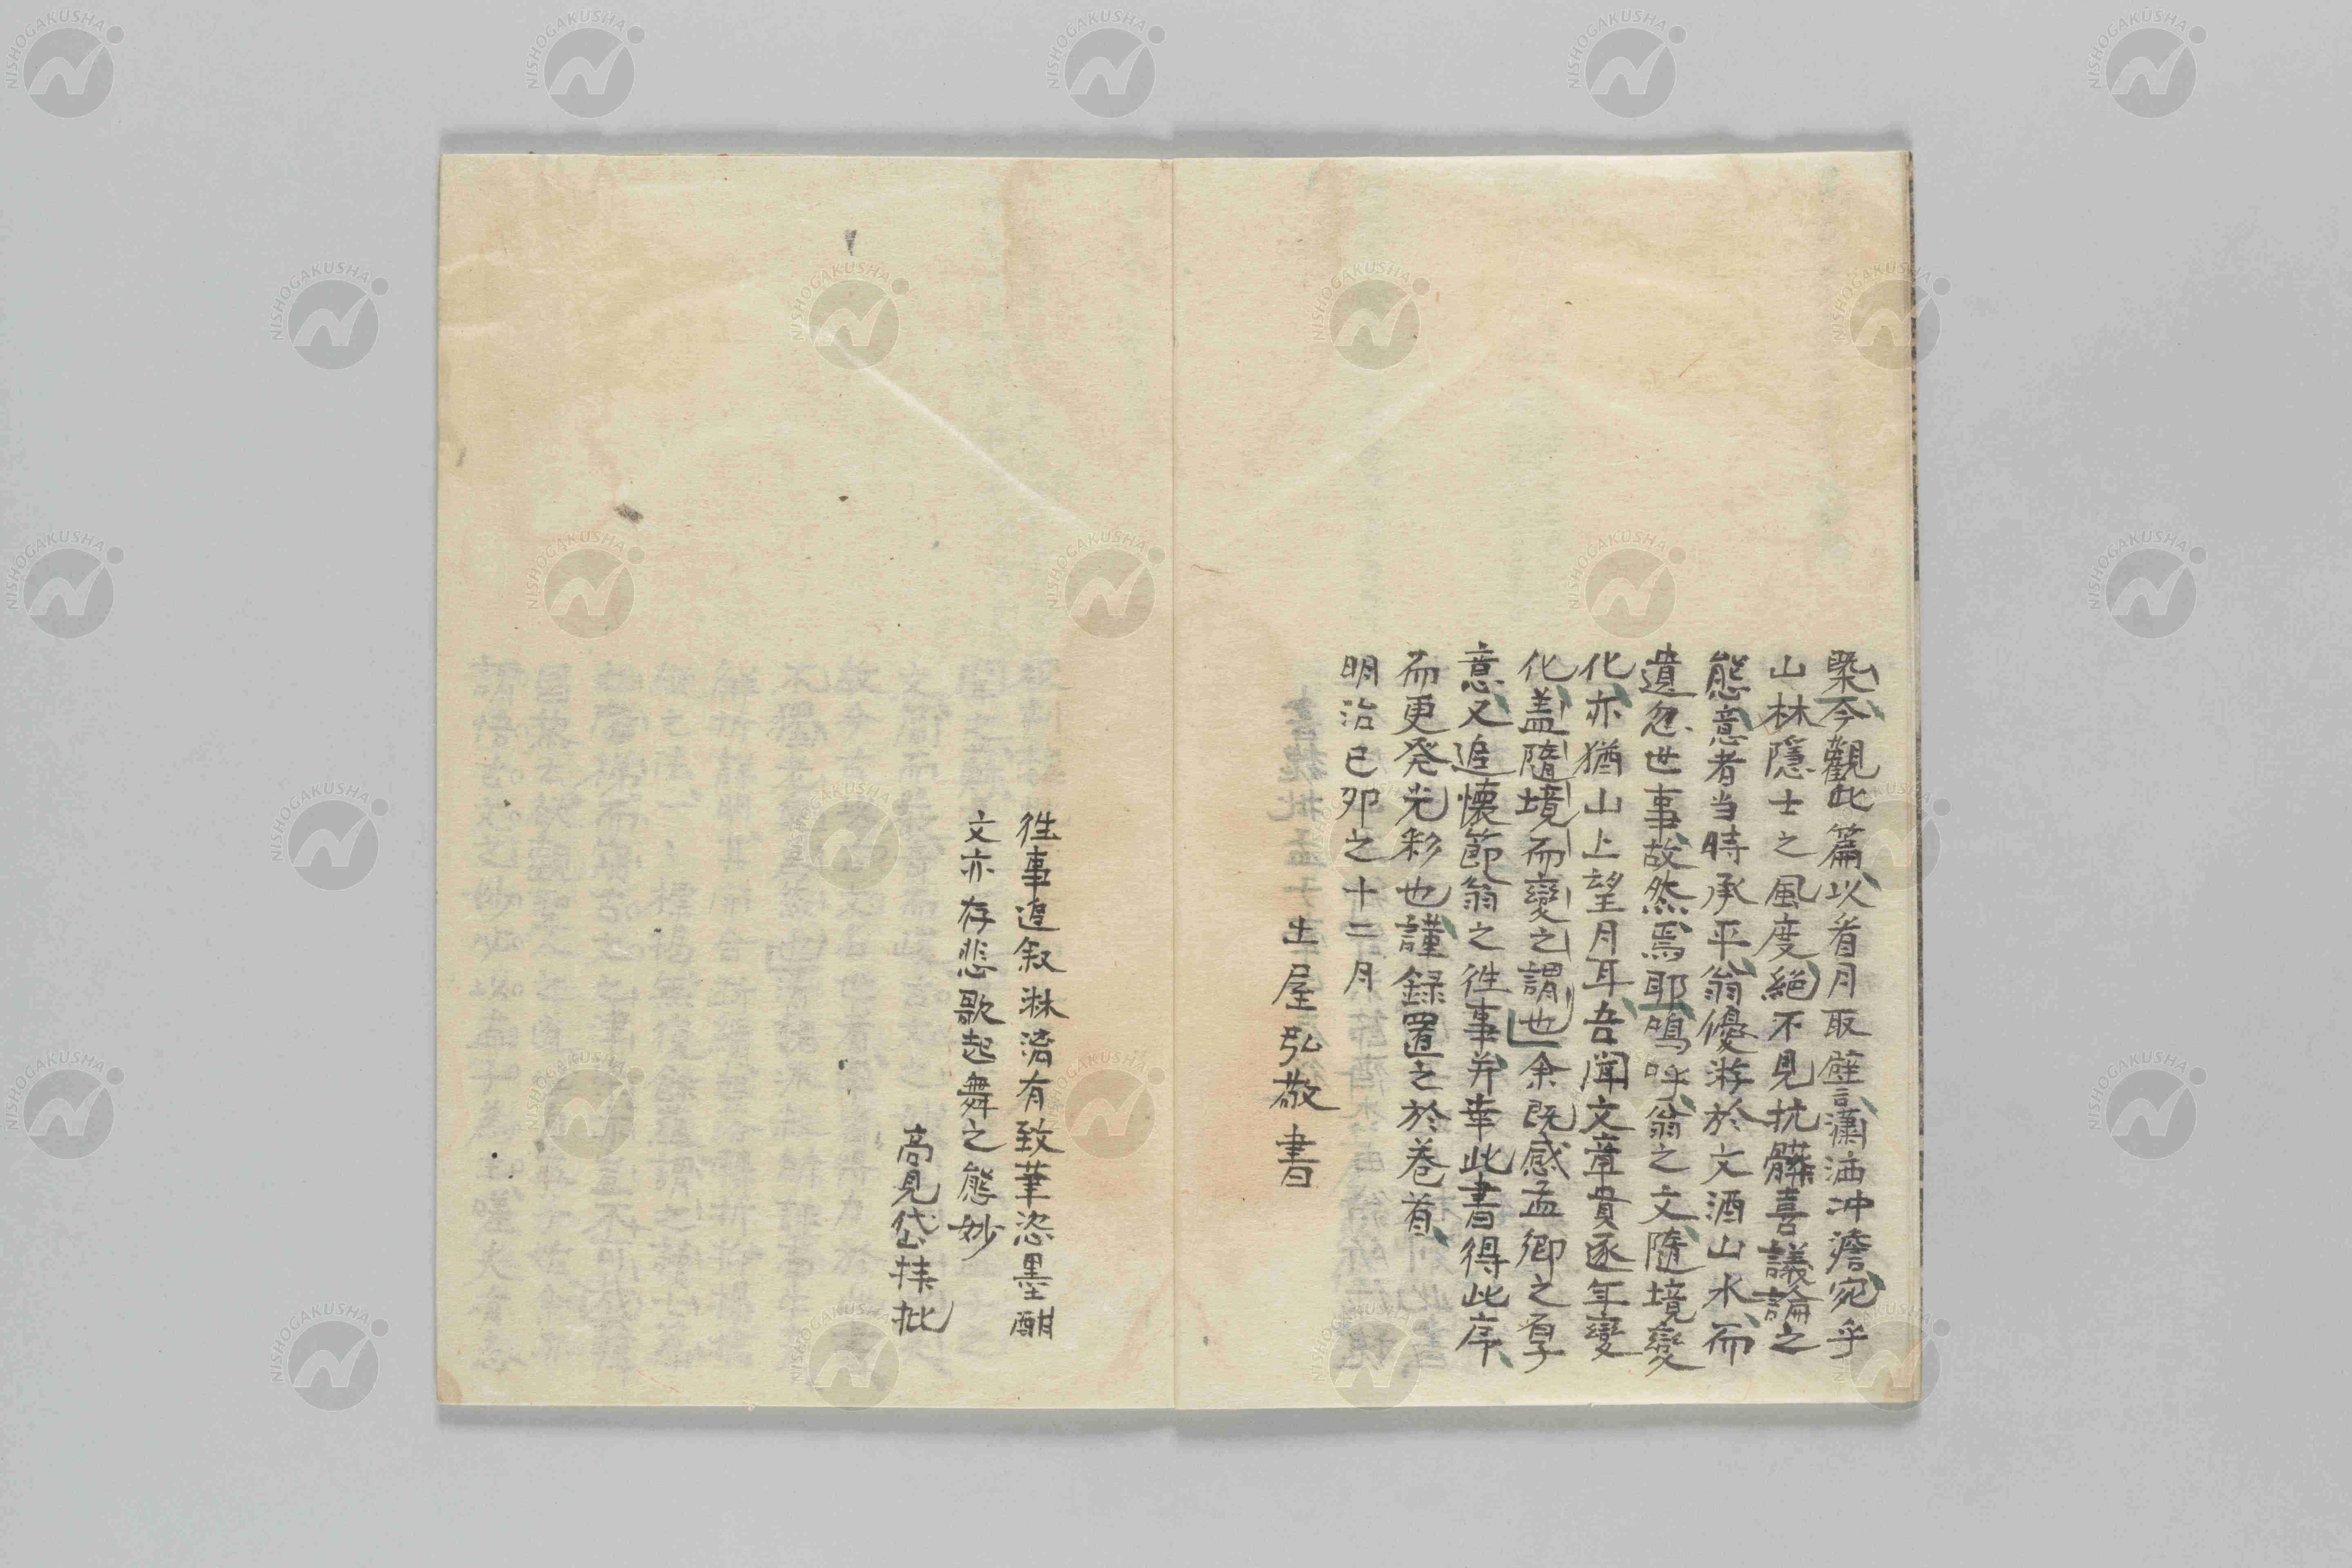 槩今觀此篇以看月取譬瀟洒冲澹宛乎
山林隱士之風度絕不見抗髒喜議論之
態意者当時承平翁優游於文酒山水而
遺忽世事故然焉耶嗚呼翁之文隨境變
化亦猶山上望月耳吾聞文章貴逐年變
化盖隨境而變之謂也余既感孟卿之厚
意又追懷節翁之徃事并幸此書得此序
而更発光彩也謹録置之於卷首
明治己卯之十二月
土屋弘敬書
徃事追叙淋漓有致筆恣墨酣
文亦存悲歌起舞之態妙
高見岱拝批